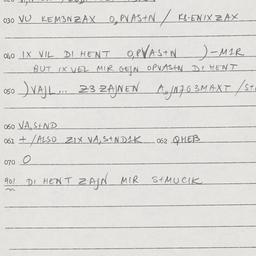 030 VU KEM3NZAX O,PVAS+N / KI-ENIXZAX
040 IX VIL DI HENT O,PVAS+N )-M1R
BUT IX VEL MIR GEJN OPVAS+N DI HENT
050 )VAJL... Z3 ZAJNEN
060 VA,S+ND
061 + /ALSO ZIX VA,S+ND1K 062 QHEB
070 O
901 DI HENT ZAJN MIR S+MUCIK